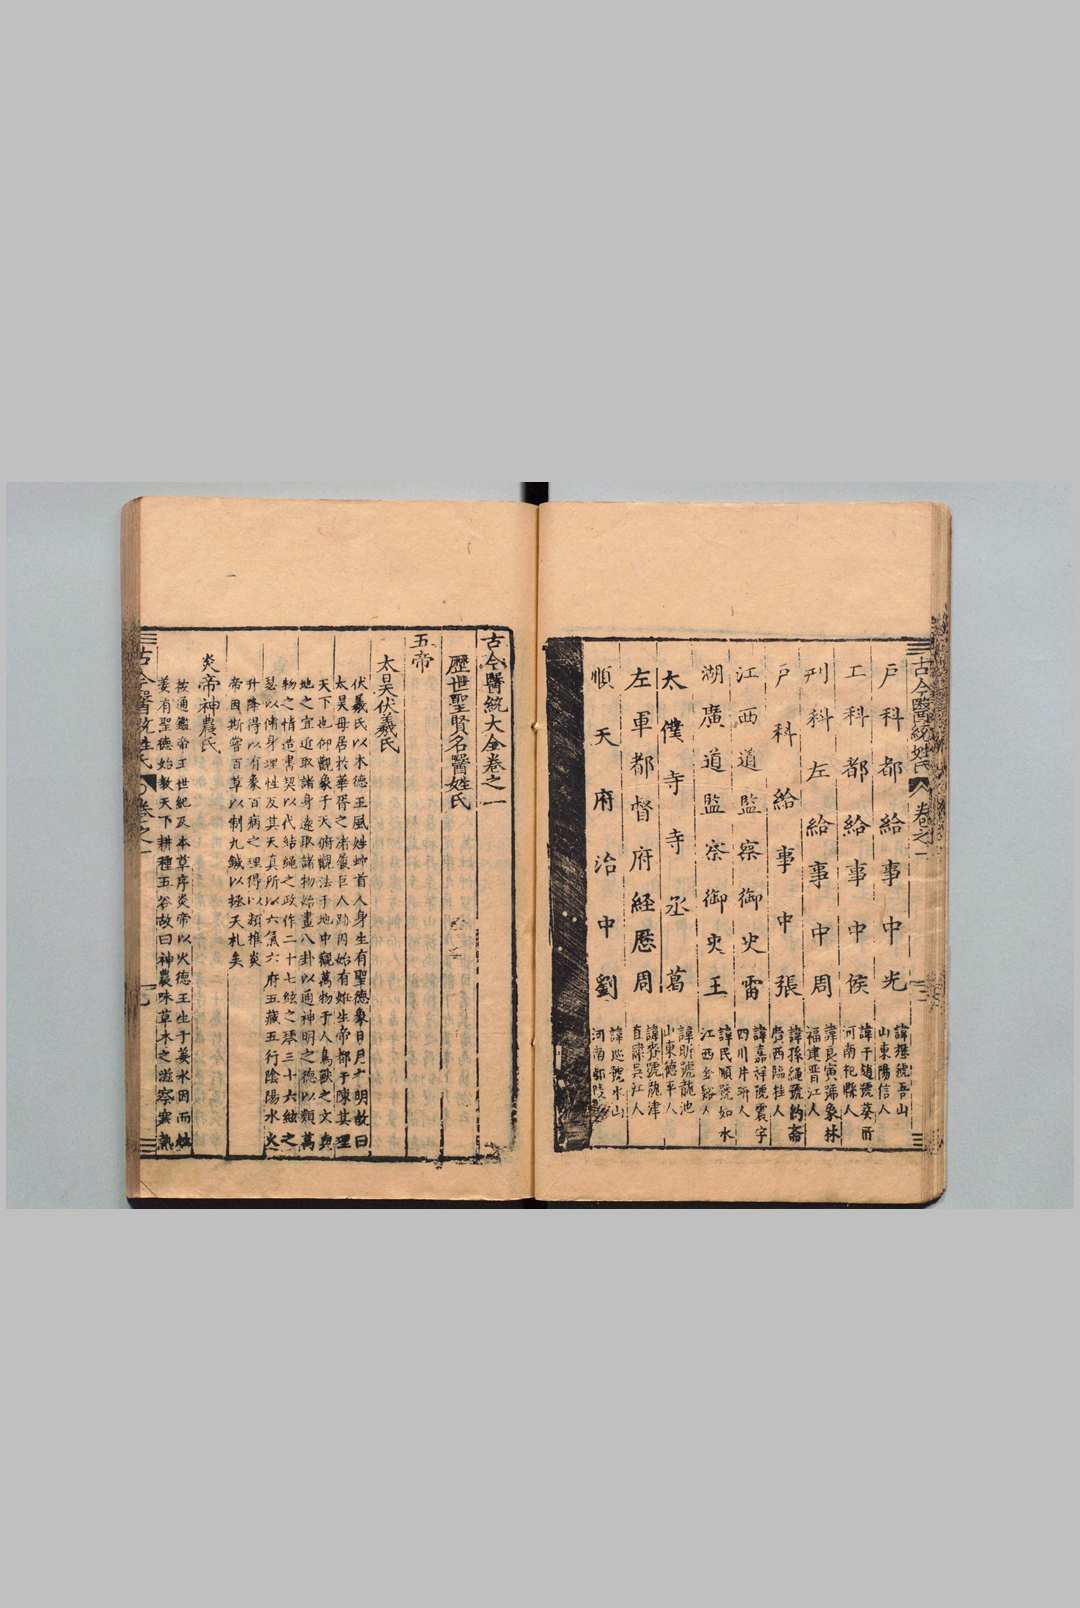 古今醫統姓氏 卷之一
戶科都給事中光 諱懋號吾山 山東陽信人
工科都給事中侯 諱于趙號葵所 河南杞縣人
刑科左給事中周 諱良寅號象林 福建晋江人
戶科給事中張 諱孫繩號釣齋 廣西臨桂人
江西道監察御史雷 諱嘉祥號震宇 四川井研人
湖廣道監察御史王 諱民順號如水 江西金谿人
太僕寺寺丞葛 諱昕號龍池 山東德平人
左軍都督府經歷周 號龍津 直隸吳江人
順天府治中劉 諱巡號水山 河南鄢陵
古今醫統大全卷之一
歷世聖賢名醫姓氏
五帝
太昊伏羲氏
伏羲氏以木德王風姓蛇首人身生有聖德象日月之明故曰
太昊母居於華胥之渚履巨人跡因始有娠生帝都于陳其理
天下也仰觀象于天俯觀法于地中觀萬物于人鳥獸之文與
地之宜近取諸身遠取諸物始畫八卦以通神明之德以類萬
物之情造書契以代結繩之政作二十七絃之琴三十六絃之
瑟以脩身理性反其天真所以六氣六府五藏五行陰陽水火
升降得以有象百病之理得以類推炎
帝因斯嘗百草以制九鍼以拯夭札矣
炎帝神農氏
按通鑑帝王世紀及本草序炎帝以火德王生于姜水因而姓
姜有聖德始教天下耕種五谷故曰神農味草木之滋察寒氣
古今醫統姓氏 卷之一